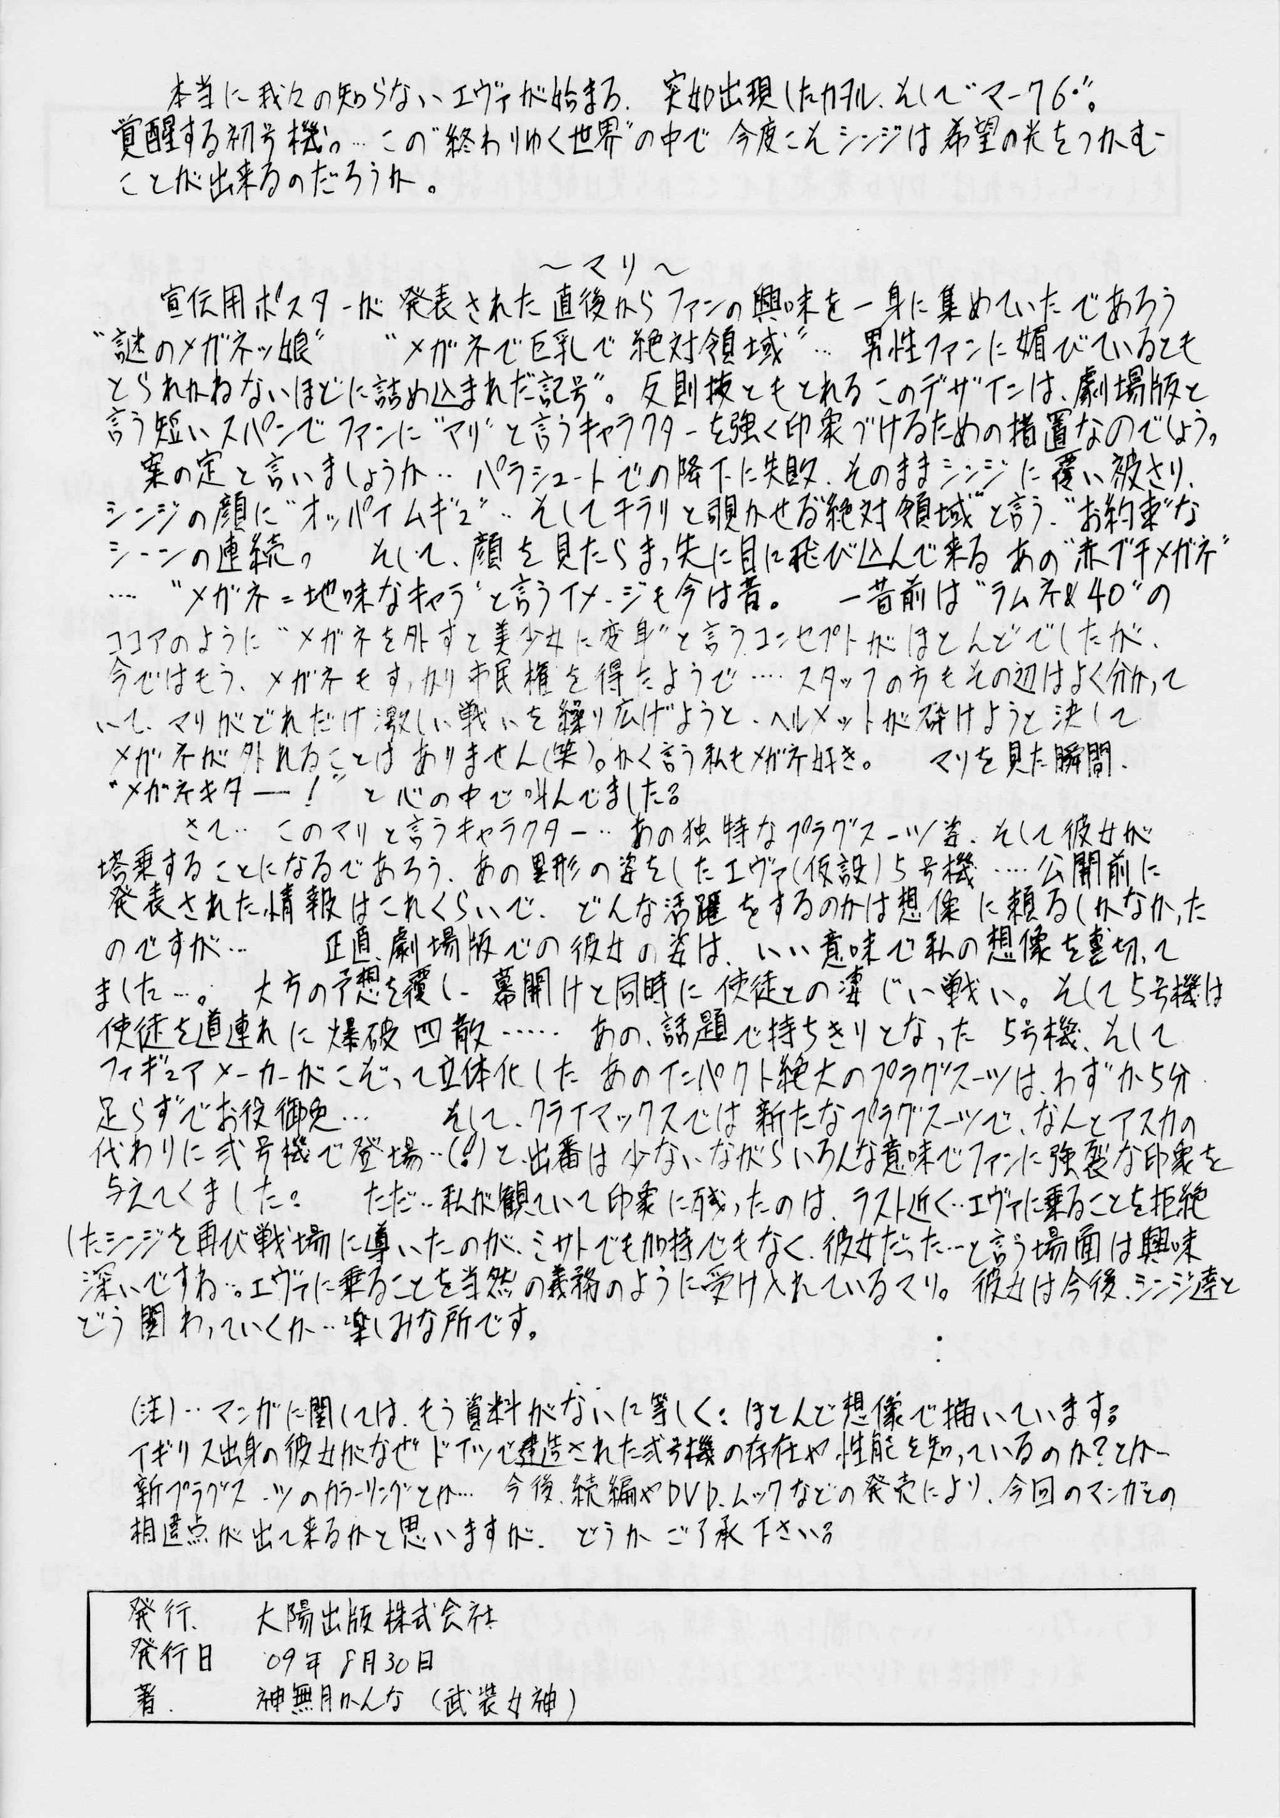 本当に我々の知らないエヴァが始まる、突如出現したカヲル、そして“マーク6”。
覚醒する初号機。…この“終わりゆく世界”の中で今度こそシンジは希望の光をつかむ
ことが出来るのだろうか。
～マリ～
宣伝用ポスターが発表された直後からファンの興味を一身に集めていたであろう
“謎のメガネッ娘” “メガネで巨乳で絶対領域”… 男性ファンに媚びているとも
とられかねないほどに詰め込まれた“記号”。反則技ともとれるこのデザインは、劇場版と
言う短いスパンでファンに“マリ”と言うキャラクターを強く印象づけるための措置なのでしょう。
案の定と言いましょうか‥パラシュートでの降下に失敗、そのままシンジに覆い被さり、
シンジの顔に“オッパイムギュ”‥そしてチラリと覗かせる“絶対領域”と言う、“お約束”な
シーンの連続。 そして、顔を見たらまっ先に目に飛び込んで来るあの“赤ブチメガネ”
…“メガネ＝地味なキャラ”と言うイメージも今は昔。 一昔前は“ラムネ&40”の
ココアのように“メガネを外すと美少女に変身”と言うコンセプトがほとんどでしたが、
今ではもう、メガネもすっかり市民権を得たようで‥‥スタッフの方もその辺はよく分かって
いて、マリがどれだけ激しい戦いを繰り広げようと、ヘルメットが砕けようと決して
メガネが外れることはありません(笑)。かく言う私もメガネ好き。 マリを見た瞬間、
“メガネキター！”と心の中で叫んでました。
さて‥このマリと言うキャラクター‥あの独特なプラグスーツ姿、そして彼女が
塔乗することになるであろう、あの異形の姿をしたエヴァ(仮設)5号機‥‥公開前に
発表された情報はこれくらいで、どんな活躍をするのかは想像に頼るしかなかった
のですが… 正直、劇場版での彼女の姿は、いい意味で私の想像を裏切って
ました…。 大方の予想を覆し、幕開けと同時に使徒との凄じい戦い。そして5号機は
使徒を道連れに爆破四散…… あの、話題で持ちきりとなった5号機、そして
フィギュアメーカーがこぞって立体化したあのインパクト絶大のプラグスーツは、わずか5分
足らずでお役御免… そして、クライマックスでは新たなプラグスーツで、なんとアスカの
代わりに弐号機で登場‥(!)と、出番は少ないながらいろんな意味でファンに強烈な印象を
与えてくました。 ただ‥私が観ていて印象に残ったのは、ラスト近く‥エヴァに乗ることを拒絶
したシンジを再び戦場に導いたのが、ミサトでも加持でもなく、彼女だった…と言う場面は興味
深いですね‥。エヴァに乗ることを当然の義務のように受け入れているマリ。彼女は今後、シンジ達と
どう関わっていくか‥楽しみな所です。
(注)‥マンガに関しては、もう資料がないに等しく、ほとんど想像で描いています。
イギリス出身の彼女がなぜドイツで建造された弐号機の存在や性能を知っているのか？とか
新プラグスーツのカラーリングとか… 今後、続編やDVD、ムックなどの発売により、今回のマンガとの
相違点が出て来るかと思いますが、どうかご了承下さい。
発行、 大陽出版株式会社
発行日 '09年8月30日
著、 神無月かんな(武装女神)